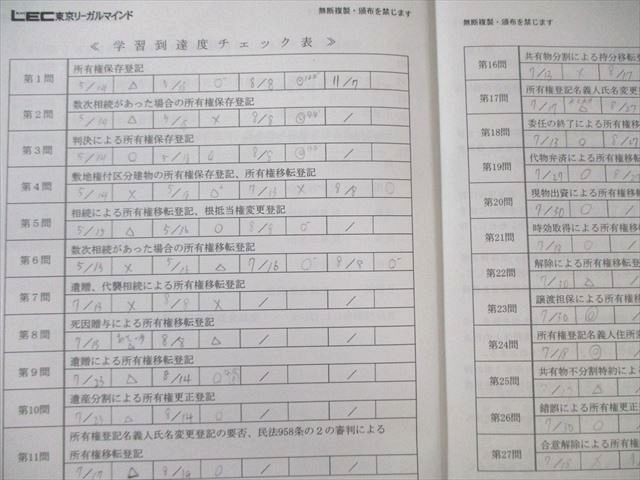 LEC東京リーガルマインド
無断複製・頒布を禁じます
≪ 学習到達度チェック表 ≫
第1問 所有権保存登記
5/14 △ 8/8 11/7
第2問 数次相続があった場合の所有権保存登記
△ × 8/8 /
第3問 判決による所有権保存登記
5/14 5/13 8/8 /
第4問 敷地権付区分建物の所有権保存登記、所有権移転登記
5/14 × 5/13 △ 7/13 × 8/8 ○
第5問 相続による所有権移転登記、根抵当権変更登記
5/13 △ 5/16 ○ 8/8 ○ /
第6問 数次相続があった場合の所有権移転登記
5/13 × 5/13 △ 7/16 ○ 8/8 ○
第7問 遺贈、代襲相続による所有権移転登記
7/13 × 8/8 × / /
第8問 死因贈与による所有権移転登記
7/13 8/8 △ /
第9問 遺贈による所有権移転登記
7/23 △ 8/14 ○ / /
第10問 遺産分割による所有権更正登記
7/23 △ 8/14 ○ / /
第11問 所有権登記名義人氏名変更登記の要否、民法958条の2の審判による
所有権移転登記
7/17 △ 8/14 ○ / /
無断複製・頒布を禁じます
第16問 共有物分割による持分移転登
7/13 × 8/17
第17問 所有権登記名義人氏名変更
7/17 △ 8/27
第18問 委任の終了による所有権移
7/13 ○ 8/17
第19問 代物弁済による所有権移
7/27 ○ 8/27
第20問 現物出資による所有権移
7/30 ○ /
第21問 時効取得による所有権移
7/18 ○ /
第22問 解除による所有権移転登
7/30 △ /
第23問 譲渡担保による所有権移
7/30 ◎ /
第24問 所有権登記名義人住
7/18 ◎ /
第25問 共有物不分割特約によ
△ /
第26問 錯誤による所有権更正
7/30 ○ /
第27問 合意解除による所有権
7/18 ×